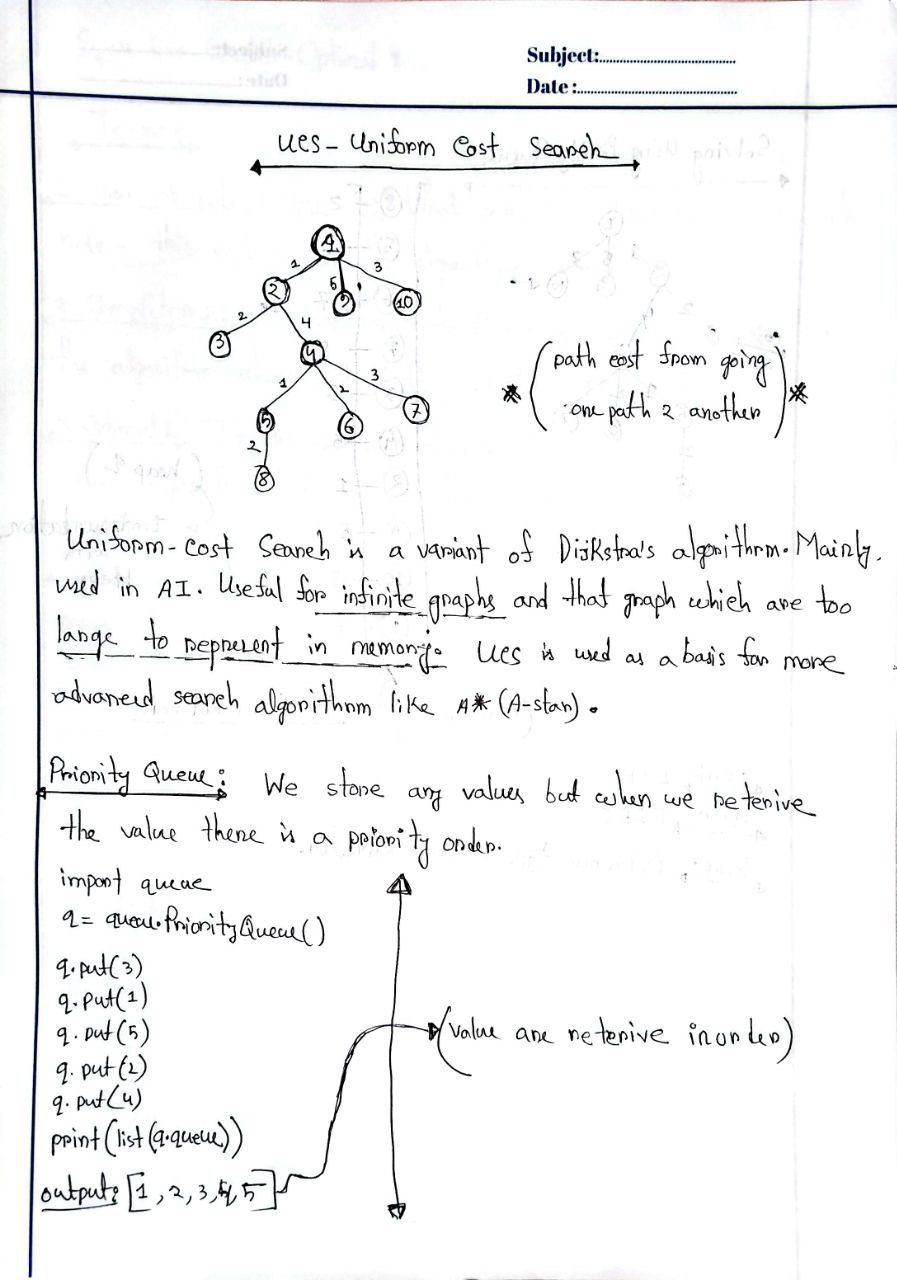 Subject:
Date:
UCS - Uniform Cost Search
1
1 5 3
2 9 10
2 4
3 4
1 2 3
5 6 7
2
8
* (path cost from going
one path 2 another) *
Uniform-Cost Search is a variant of Dijkstra's algorithm. Mainly
used in AI. Useful for infinite graphs and that graph which are too
large to represent in memory. UCS is used as a basis for more
advanced search algorithm like A* (A-star).
Priority Queue: We store any values but when we reterive
the value there is a priority order.
import queue
q = queue.PriorityQueue()
q.put(3)
q.put(1)
q.put(5)
(value are reterive inorder)
q.put(2)
q.put(4)
print(list(q.queue))
output: [1, 2, 3, 4, 5]